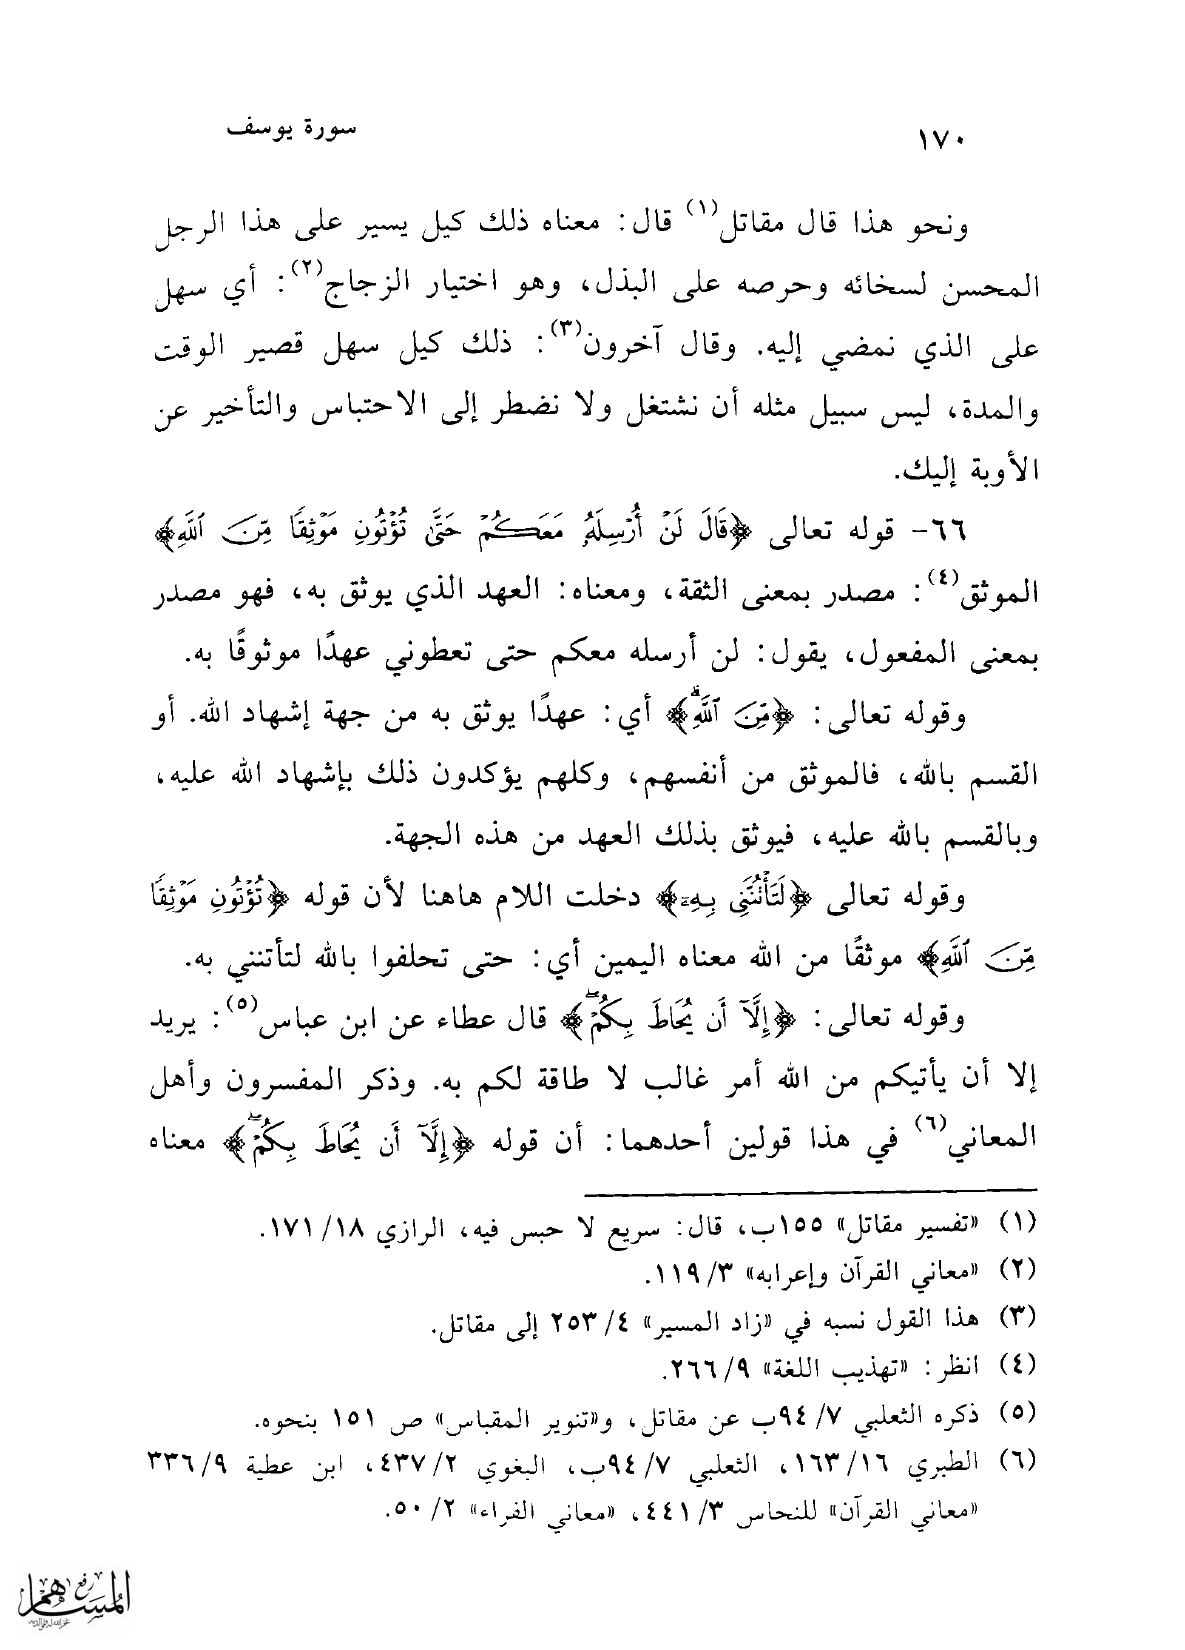 ١٧٠
سورة يوسف
ونحو هذا قال مقاتل(١) قال: معناه ذلك كيل يسير على هذا الرجل
المحسن لسخائه وحرصه على البذل، وهو اختيار الزجاج(٢): أي سهل
على الذي نمضي إليه. وقال آخرون(٣): ذلك كيل سهل قصير الوقت
والمدة، ليس سبيل مثله أن نشتغل ولا نضطر إلى الاحتباس والتأخير عن
الأوبة إليك.
٦٦- قوله تعالى ﴿قَالَ لَنْ أُرْسِلَهُۥ مَعَكُمْ حَتَّىٰ تُؤْتُونِ مَوْثِقًا مِّنَ ٱللَّهِ﴾
الموثق(٤): مصدر بمعنى الثقة، ومعناه: العهد الذي يوثق به، فهو مصدر
بمعنى المفعول، يقول: لن أرسله معكم حتى تعطوني عهدًا موثوقًا به.
وقوله تعالى: ﴿مِّنَ ٱللَّهِۗ﴾ أي: عهدًا يوثق به من جهة إشهاد الله. أو
القسم بالله، فالموثق من أنفسهم، وكلهم يؤكدون ذلك بإشهاد الله عليه،
وبالقسم بالله عليه، فيوثق بذلك العهد من هذه الجهة.
وقوله تعالى ﴿لَتَأْتُنَّنِى بِهِۦٓ﴾ دخلت اللام هاهنا لأن قوله ﴿تُؤْتُونِ مَوْثِقًا
مِّنَ ٱللَّهِ﴾ موثقًا من الله معناه اليمين أي: حتى تحلفوا بالله لتأتنني به.
وقوله تعالى: ﴿إِلَّآ أَن يُحَاطَ بِكُمْۖ﴾ قال عطاء عن ابن عباس(٥): يريد
إلا أن يأتيكم من الله أمر غالب لا طاقة لكم به. وذكر المفسرون وأهل
المعاني(٦) في هذا قولين أحدهما: أن قوله ﴿إِلَّآ أَن يُحَاطَ بِكُمْۖ﴾ معناه
(١) «تفسير مقاتل» ١٥٥ب، قال: سريع لا حبس فيه، الرازي ١٨/ ١٧١.
(٢) «معاني القرآن وإعرابه» ٣/ ١١٩.
(٣) هذا القول نسبه في «زاد المسير» ٤/ ٢٥٣ إلى مقاتل.
(٤) انظر: «تهذيب اللغة» ٩/ ٢٦٦.
(٥) ذكره الثعلبي ٧/ ٩٤ب عن مقاتل، و«تنوير المقباس» ص ١٥١ بنحوه.
(٦) الطبري ١٦/ ١٦٣، الثعلبي ٧/ ٩٤ب، البغوي ٢/ ٤٣٧، ابن عطية ٩/ ٣٣٦
«معاني القرآن» للنحاس ٣/ ٤٤١، «معاني الفراء» ٢/ ٥٠.